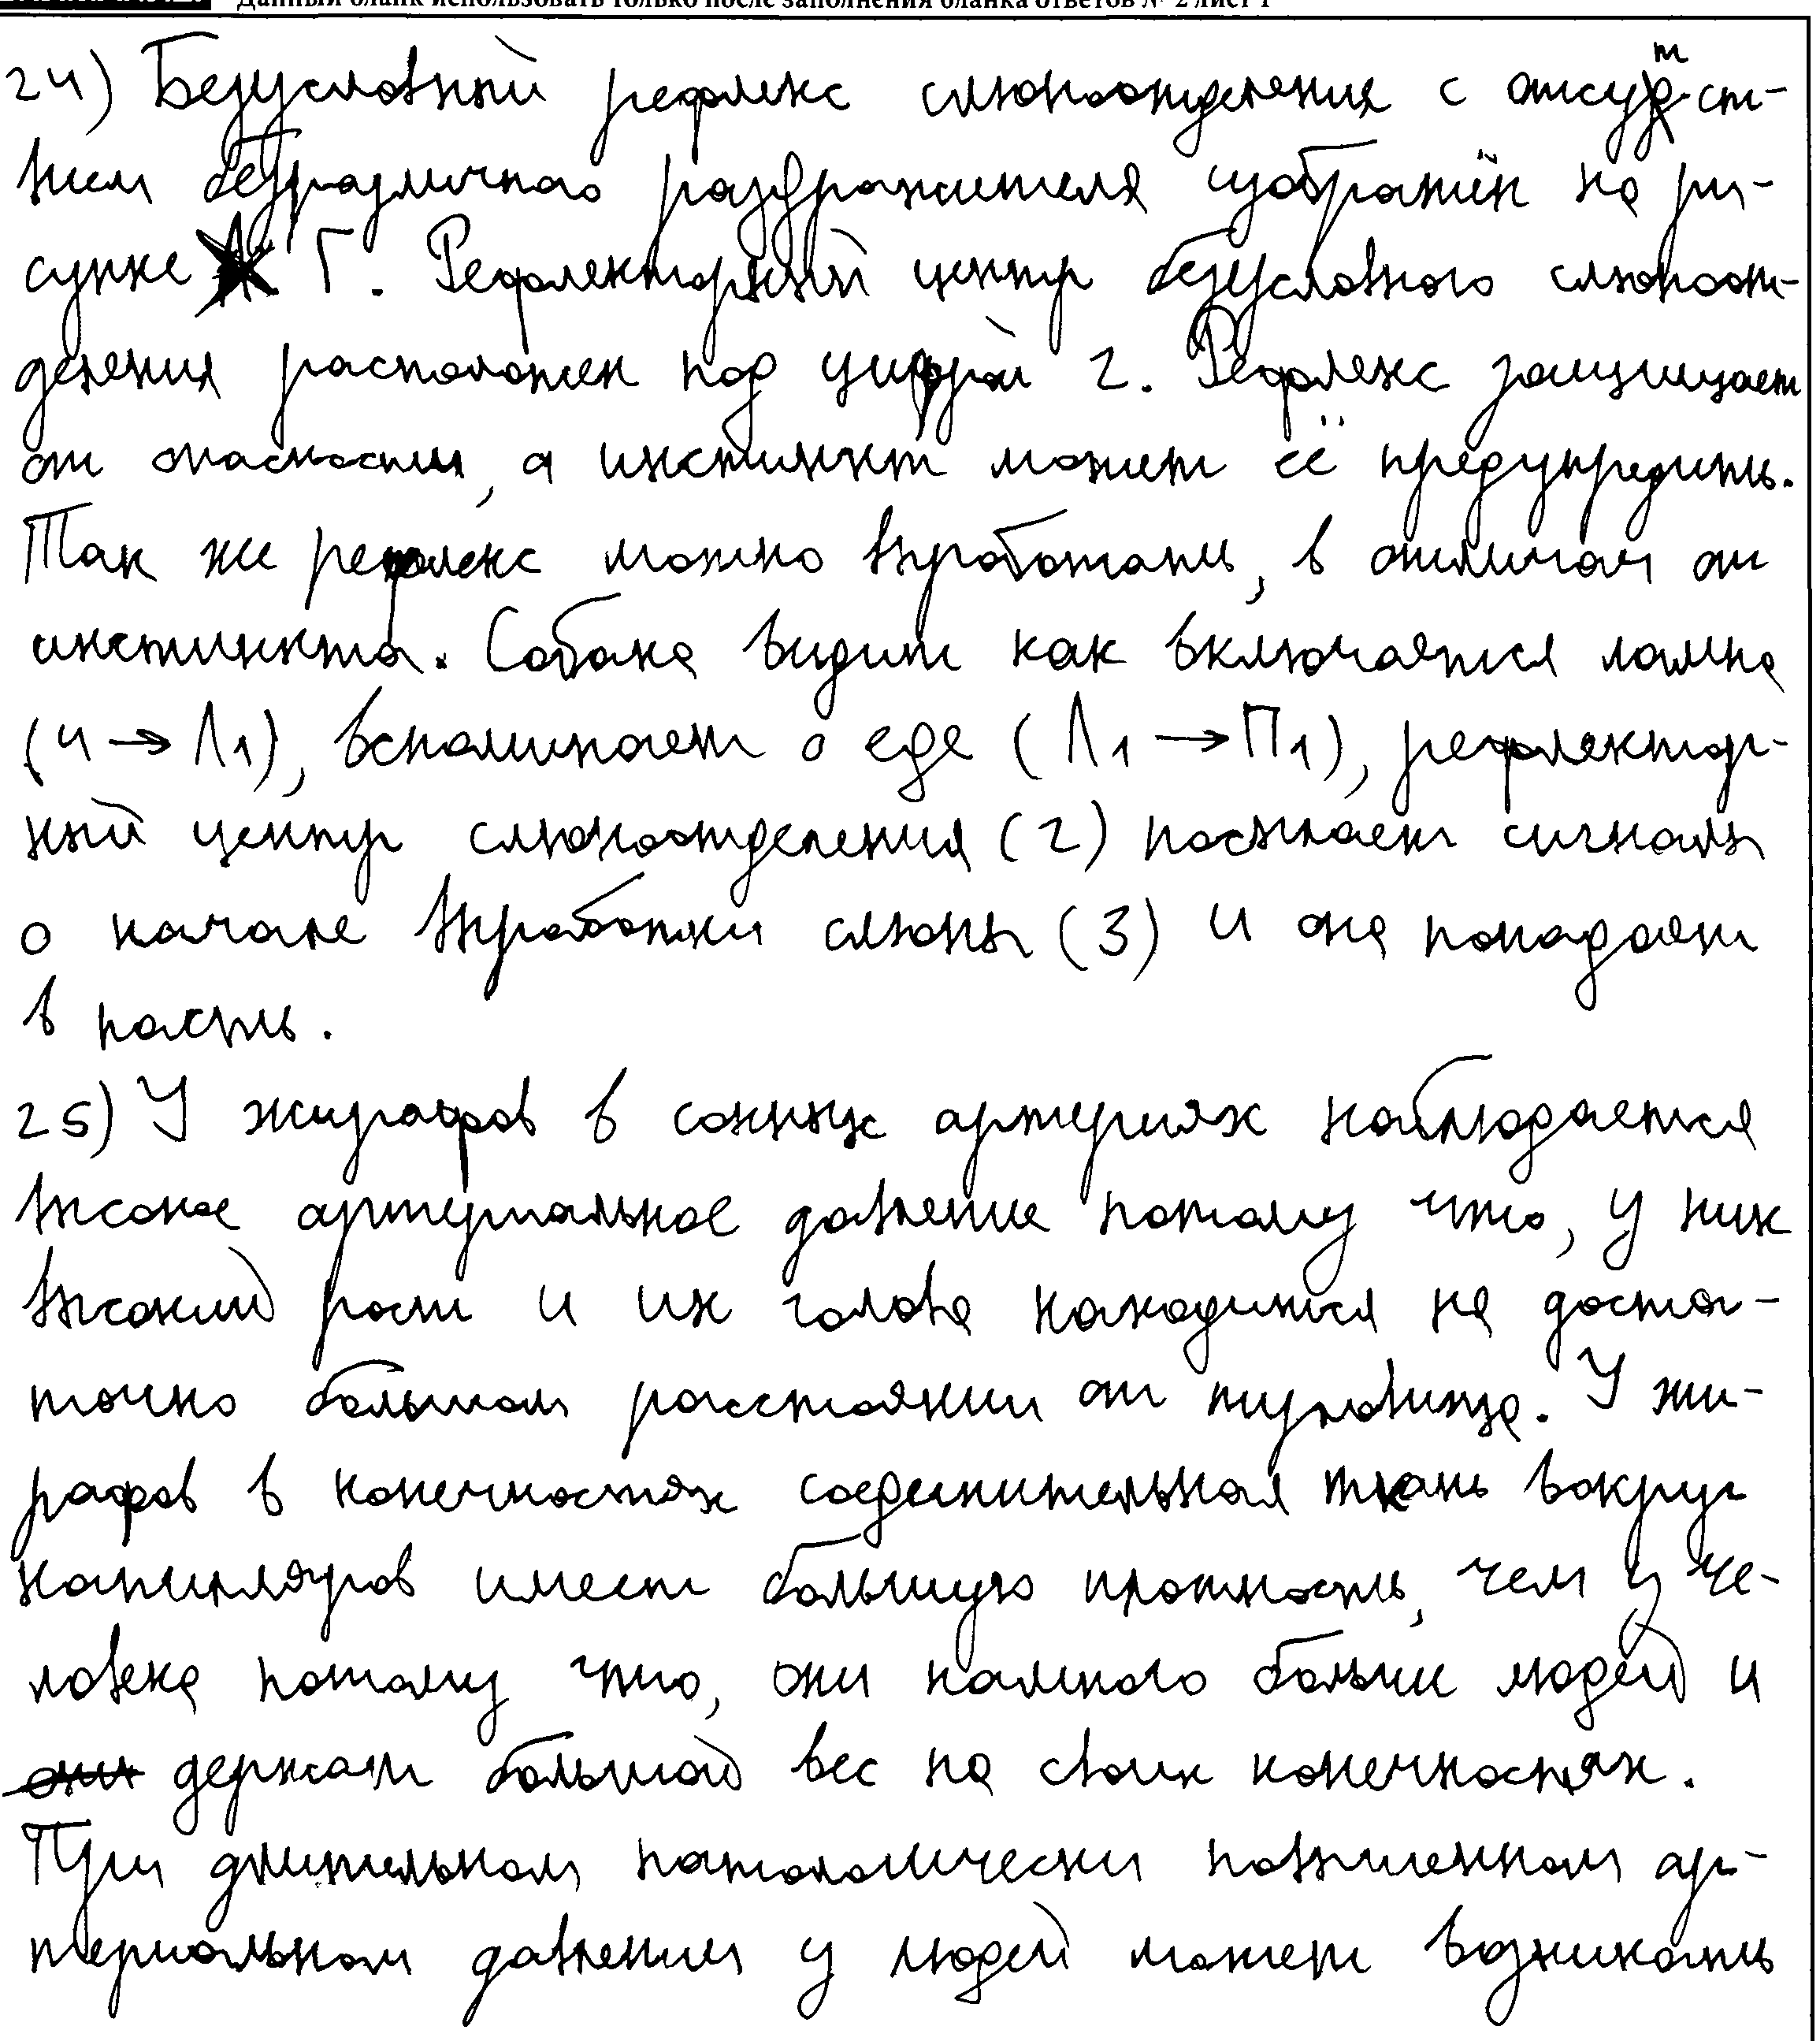 Данный бланк использовать только после заполнения бланка ответов № 2 лист 1
24) Безусловный рефлекс слюноотделения с отсутст-
вием безразличного раздражителя изображён на ри-
сунке Г. Рефлекторный центр безусловного слюноот-
деления расположен под цифрой 2. Рефлекс защищает
от опасности, а инстинкт может её предупредить.
Так же рефлекс можно выработать, в отличаи от
инстинкта. Собака видит как включается лампа
(4 → Л1), вспоминает о еде (Л1 → П1), рефлектор-
ный центр слюноотделения (2) посылает сигналы
о начале выработки слюны (3) и она попадает
в пасть.
25) У жирафов в сонных артериях наблюдается
высокое артериальное давление потому что, у них
высокий рост и их голова находится на доста-
точно большом расстоянии от туловища. У жи-
рафов в конечностях соединительная ткань вокруг
капилляров имеет большую плотность, чем у че-
ловека потому что, они намного больше людей и
держат большой вес на своих конечностях.
При длительном патологически повышенном ар-
териальном давлении у людей может возникать